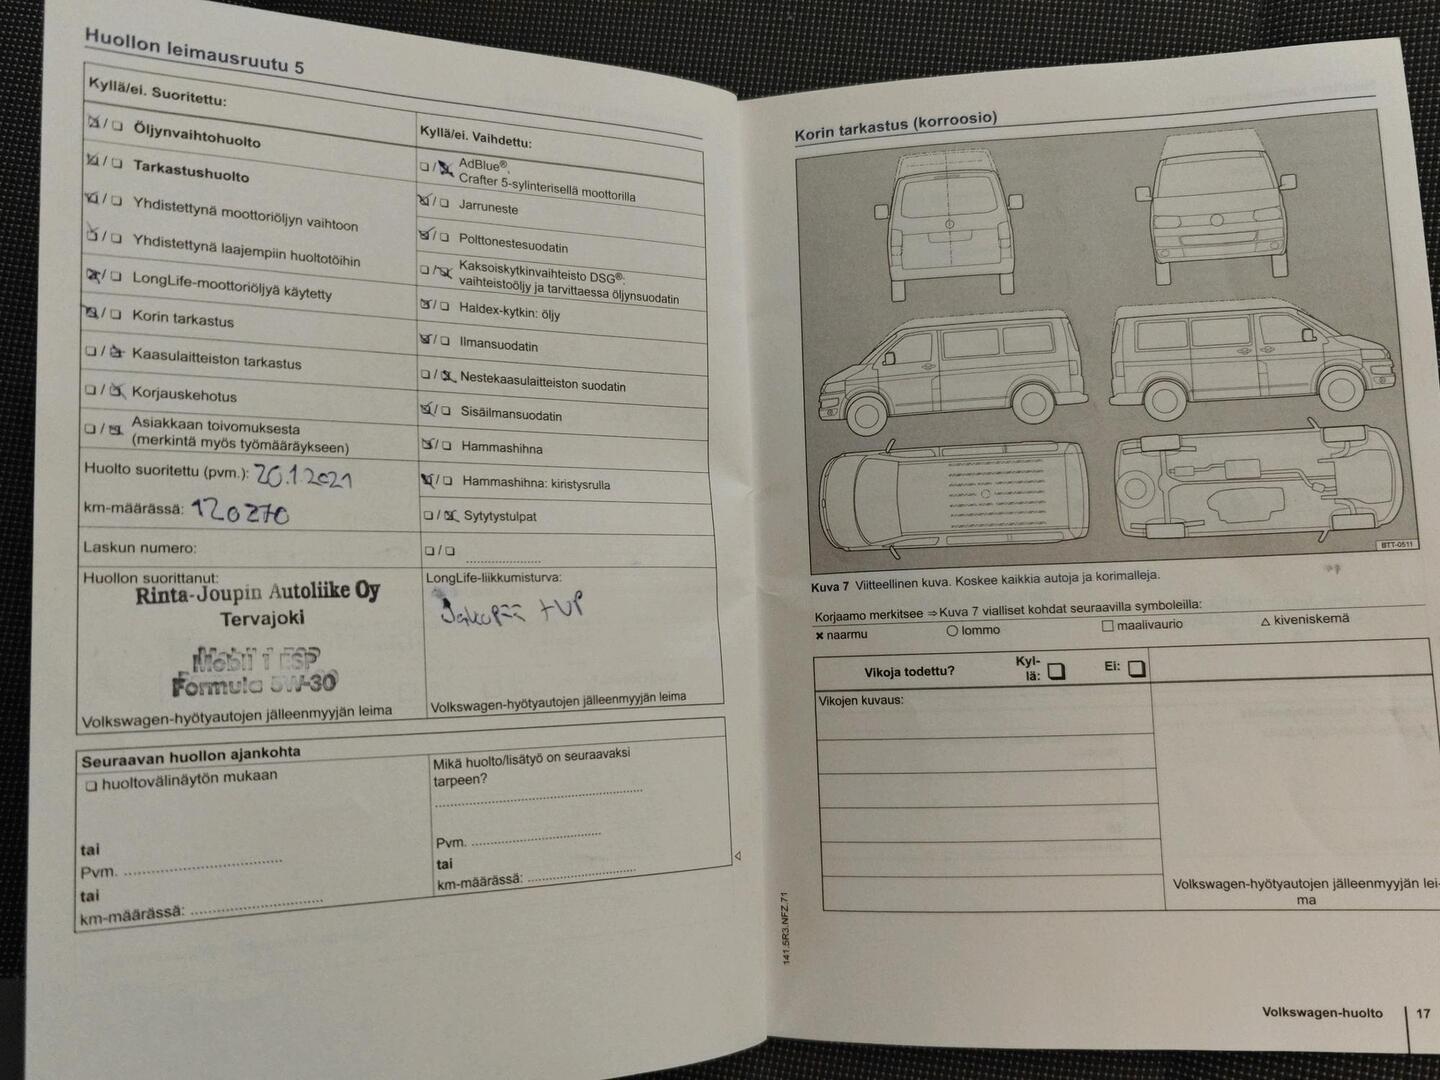 Huollon leimausruutu 5
Kyllä/ei. Suoritettu:
Öljynvaihtohuolto
Tarkastushuolto
Yhdistettynä moottoriöljyn vaihtoon
Yhdistettynä laajempiin huoltotöihin
LongLife-moottoriöljyä käytetty
Korin tarkastus
Kaasulaitteiston tarkastus
Korjauskehotus
Asiakkaan toivomuksesta
(merkintä myös työmääräykseen)
Huolto suoritettu (pvm.): 20.1.2021
km-määrässä: 120270
Laskun numero:
Huollon suorittanut:
Rinta-Joupin Autoliike Oy
Tervajoki
Mobil 1 ESP
Formula 5W-30
Volkswagen-hyötyautojen jälleenmyyjän leima
Kyllä/ei. Vaihdettu:
AdBlue®,
Crafter 5-sylinterisellä moottorilla
Jarruneste
Polttonestesuodatin
Kaksoiskytkinvaihteisto DSG®:
vaihteistoöljy ja tarvittaessa öljynsuodatin
Haldex-kytkin: öljy
Ilmansuodatin
Nestekaasulaitteiston suodatin
Sisäilmansuodatin
Hammashihna
Hammashihna: kiristysrulla
Sytytystulpat
LongLife-liikkumisturva:
Jakopää + VP
Volkswagen-hyötyautojen jälleenmyyjän leima
Seuraavan huollon ajankohta
huoltovälinäytön mukaan
tai
Pvm.
tai
km-määrässä:
Mikä huolto/lisätyö on seuraavaksi
tarpeen?
Pvm.
tai
km-määrässä:
Korin tarkastus (korroosio)
BTT-0511
Kuva 7 Viitteellinen kuva. Koskee kaikkia autoja ja korimalleja.
Korjaamo merkitsee ⇒ Kuva 7 vialliset kohdat seuraavilla symboleilla:
× naarmu ○ lommo □ maalivaurio △ kiveniskemä
Vikoja todettu? Kyl-
lä: Ei:
Vikojen kuvaus:
Volkswagen-hyötyautojen jälleenmyyjän lei-
ma
141.5R3.NFZ.71
Volkswagen-huolto 17